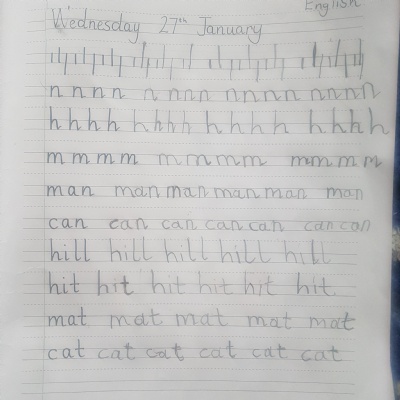 English
Wednesday 27th January
n n n n n n n n n n n n n n n n
h h h h h h h h h h h h h h h h
m m m m m m m m m m m m m
man man man man man man
can can can can can can can
hill hill hill hill hill
hit hit hit hit hit hit
mat mat mat mat mat
cat cat cat cat cat cat